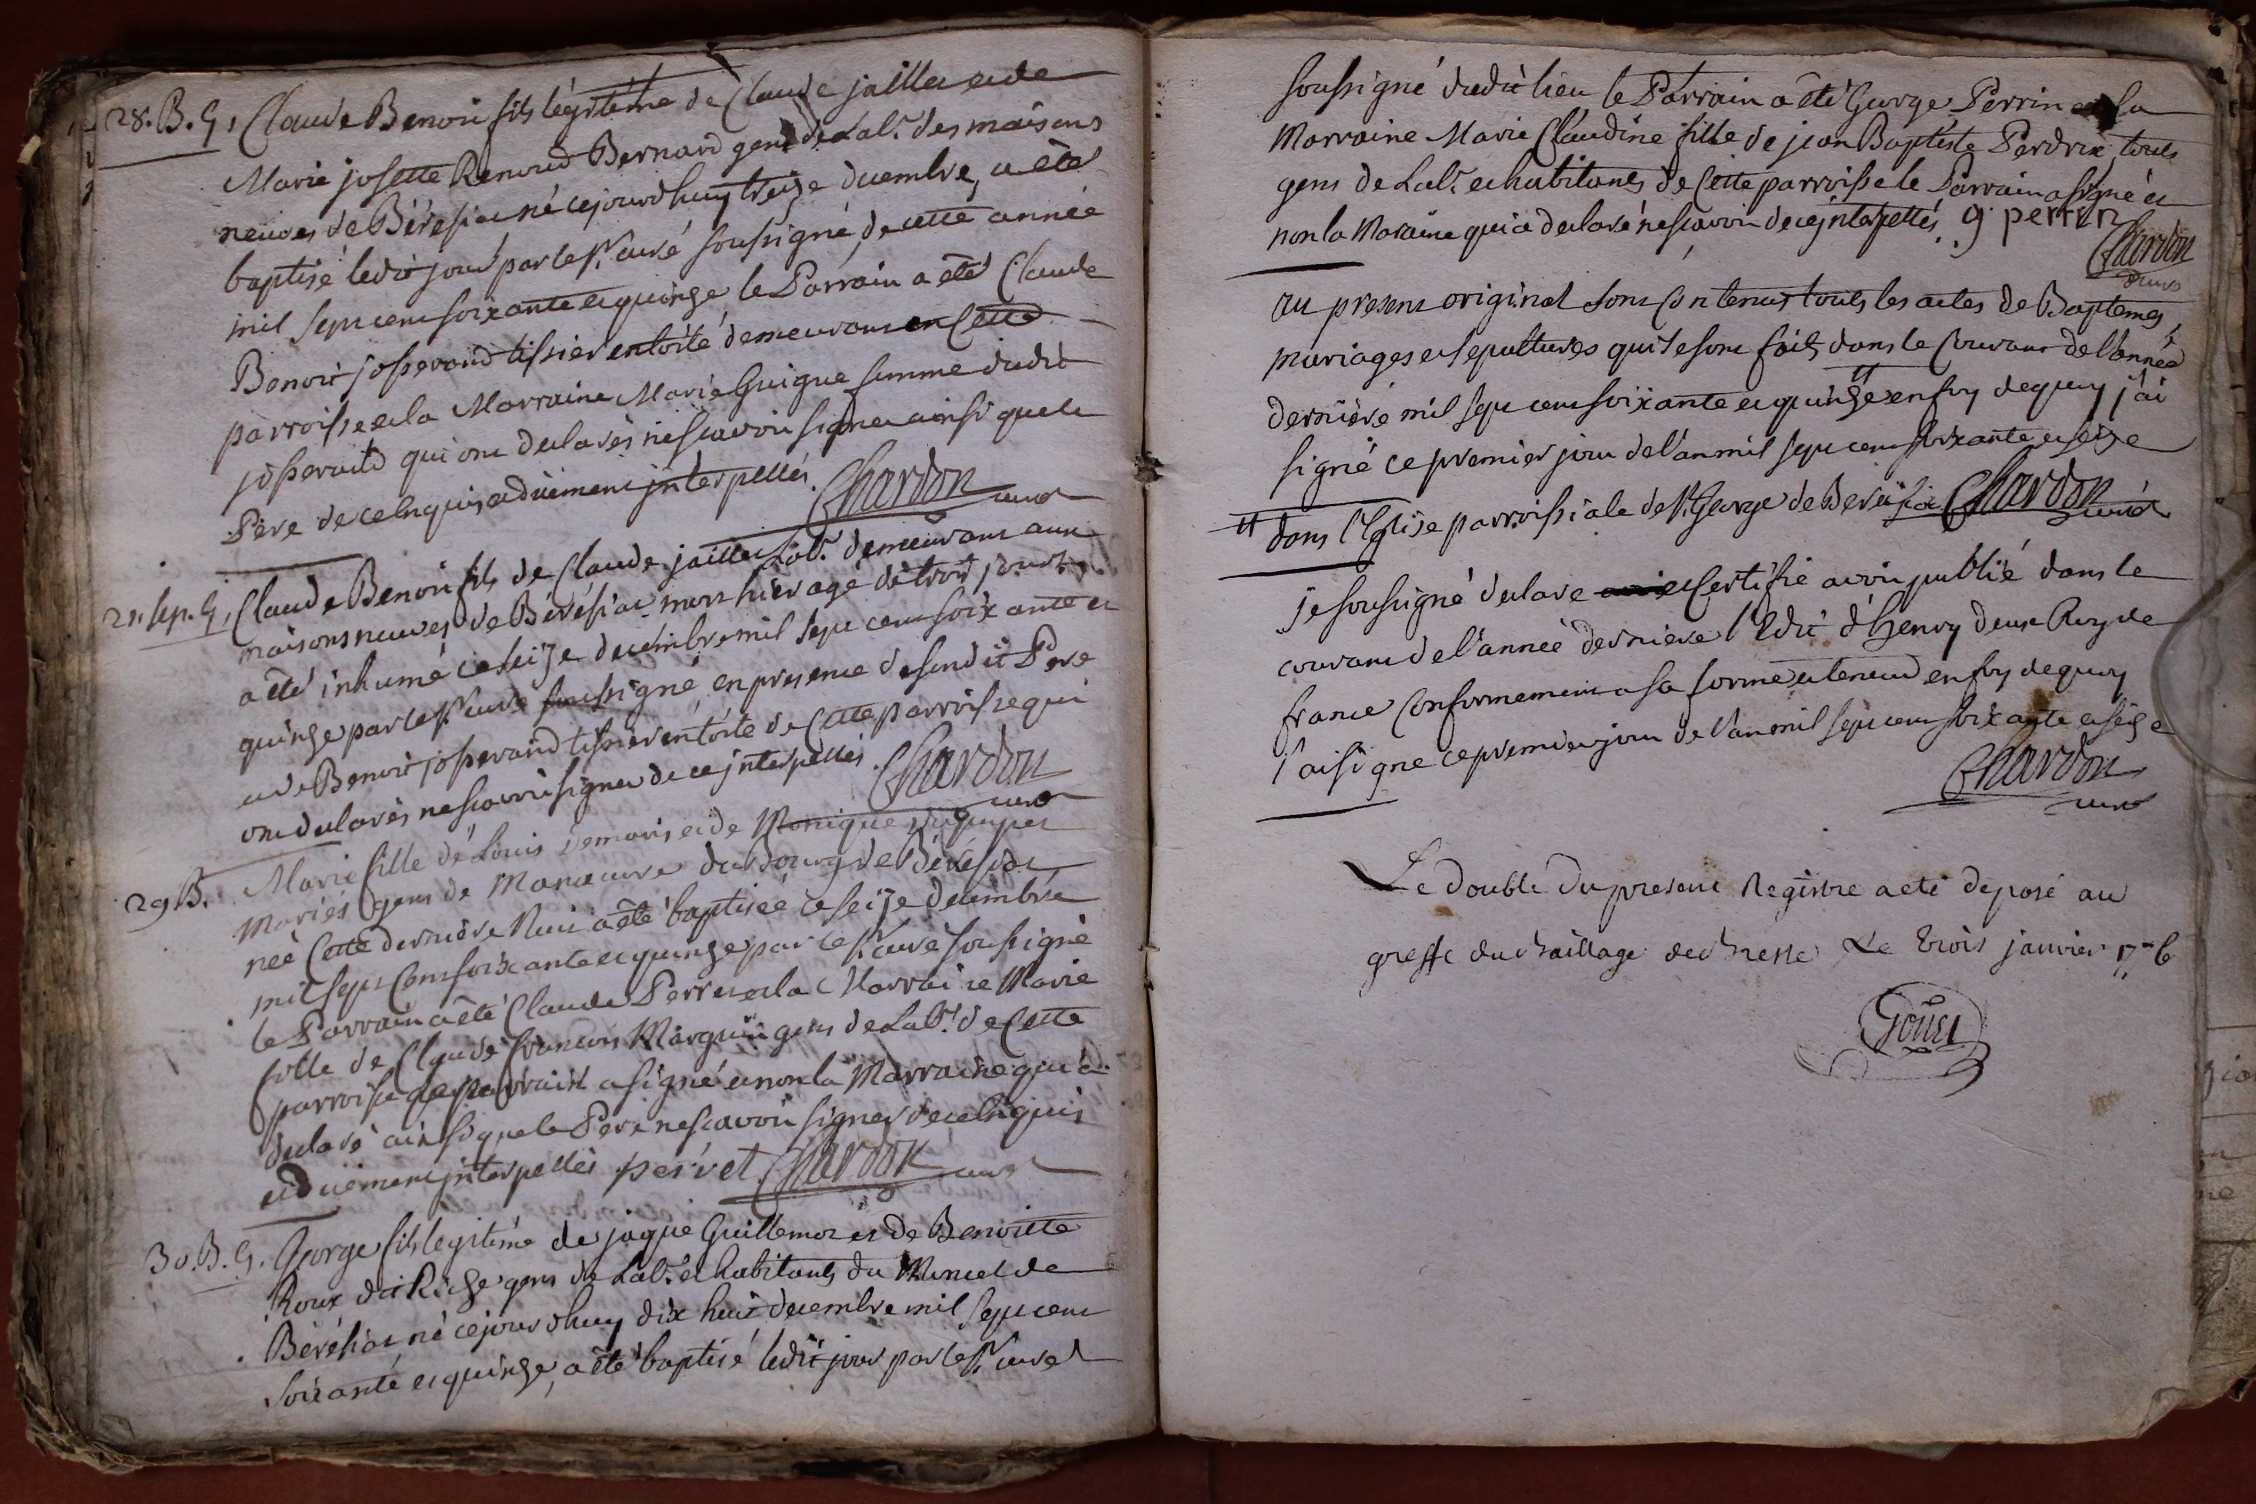 28. B. G. Claude Benoit fils légitime de Claude jaillet et de
Marie josette Renoud Bernard gens de Lab.r des maisons
neuves de Béreisiat né cejourdhuy treize decembre, a été
baptisé ledit jour par le Sr. curé soussigné, de cette année
mil sept cent soixante et quinze, le Parrain a été Claude
Benoit josserand tissier en toile demeurant en Cette
parroisse et la Marraine Marie Guigue femme dudit
josserand qui ont déclarés ne sçavoir signer ainsi que le
Père de ce enquis et duement interpellés. Chardon
curé
21. sep. G. Claude Benoit fils de Claude jaillet Lab.r demeurant aux
maisons neuves de Béréisiat mort hier agé de trois jours
a été inhumé ce seize decembre mil sept cent soixante et
quinze par le Sr. curé soussigné, en presence de sondit Pere
et de Benoit josserand tissier en toile de Cette parroisse qui
ont déclarés ne sçavoir signer de ce interpellés. Chardon
curé
29. B. Marie fille de Louis Demaris et de Monique
Mariés gens de Manœuvre du Bourg de Béréisiat
née Cette dernière Nuit a été baptisée ce seize decembre
mil sept Cent soixante et quinze par le Sr. curé soussigné
le Parrain a été Claude Perret et la Marraine Marie
fille de Claude francois Marguin gens de Lab.r de Cette
parroisse le parrain a signé et non la Marraine qui a
déclaré ainsi que le Pere ne sçavoir signer de ce enquis
et duement interpellés perret Chardon curé
30. B. G. George fils legitime de jaque Guillemot et de Benoitte
Roux dit gens de Lab.r et habitants du Moncel de
Béréisiat né cejourdhuy dix huit decembre mil sept cent
soixante et quinze, a été baptisé ledit jour par le Sr. curé
soussigné dudit lieu le Parrain a été George Perrin et la
Marraine Marie Claudine fille de jean Baptiste Perdrix touts
gens de Lab.r et habitants de Cette parroisse le Parrain a signé et
non la Maraine qui a declaré ne sçavoir de ce interpellés. g perrin
Chardon
curé
au present original sont Contenus touts les actes de Baptemes,
mariages et sepultures qui se sont faits dans le Courant de l'année
dernière mil sept cent soixante et quinze en foy de quoy j'ai
signé ce premier jour de l'an mil sept cent soixante et seize
dans l'Eglise parroissiale de St. George de Beréisiat Chardon
curé
je soussigné declare et Certifie avoir publié dans le
courant de l'année derniere l'Edit d'henry deux Roy de
france Conformement a sa forme et teneur en foy de quoy
j'ai signé ce premier jour de l'an mil sept cent soixante et seize
Chardon
curé
Le double du present Registre a eté deposé au
greffe du Bailliage de Bresse Le trois janvier